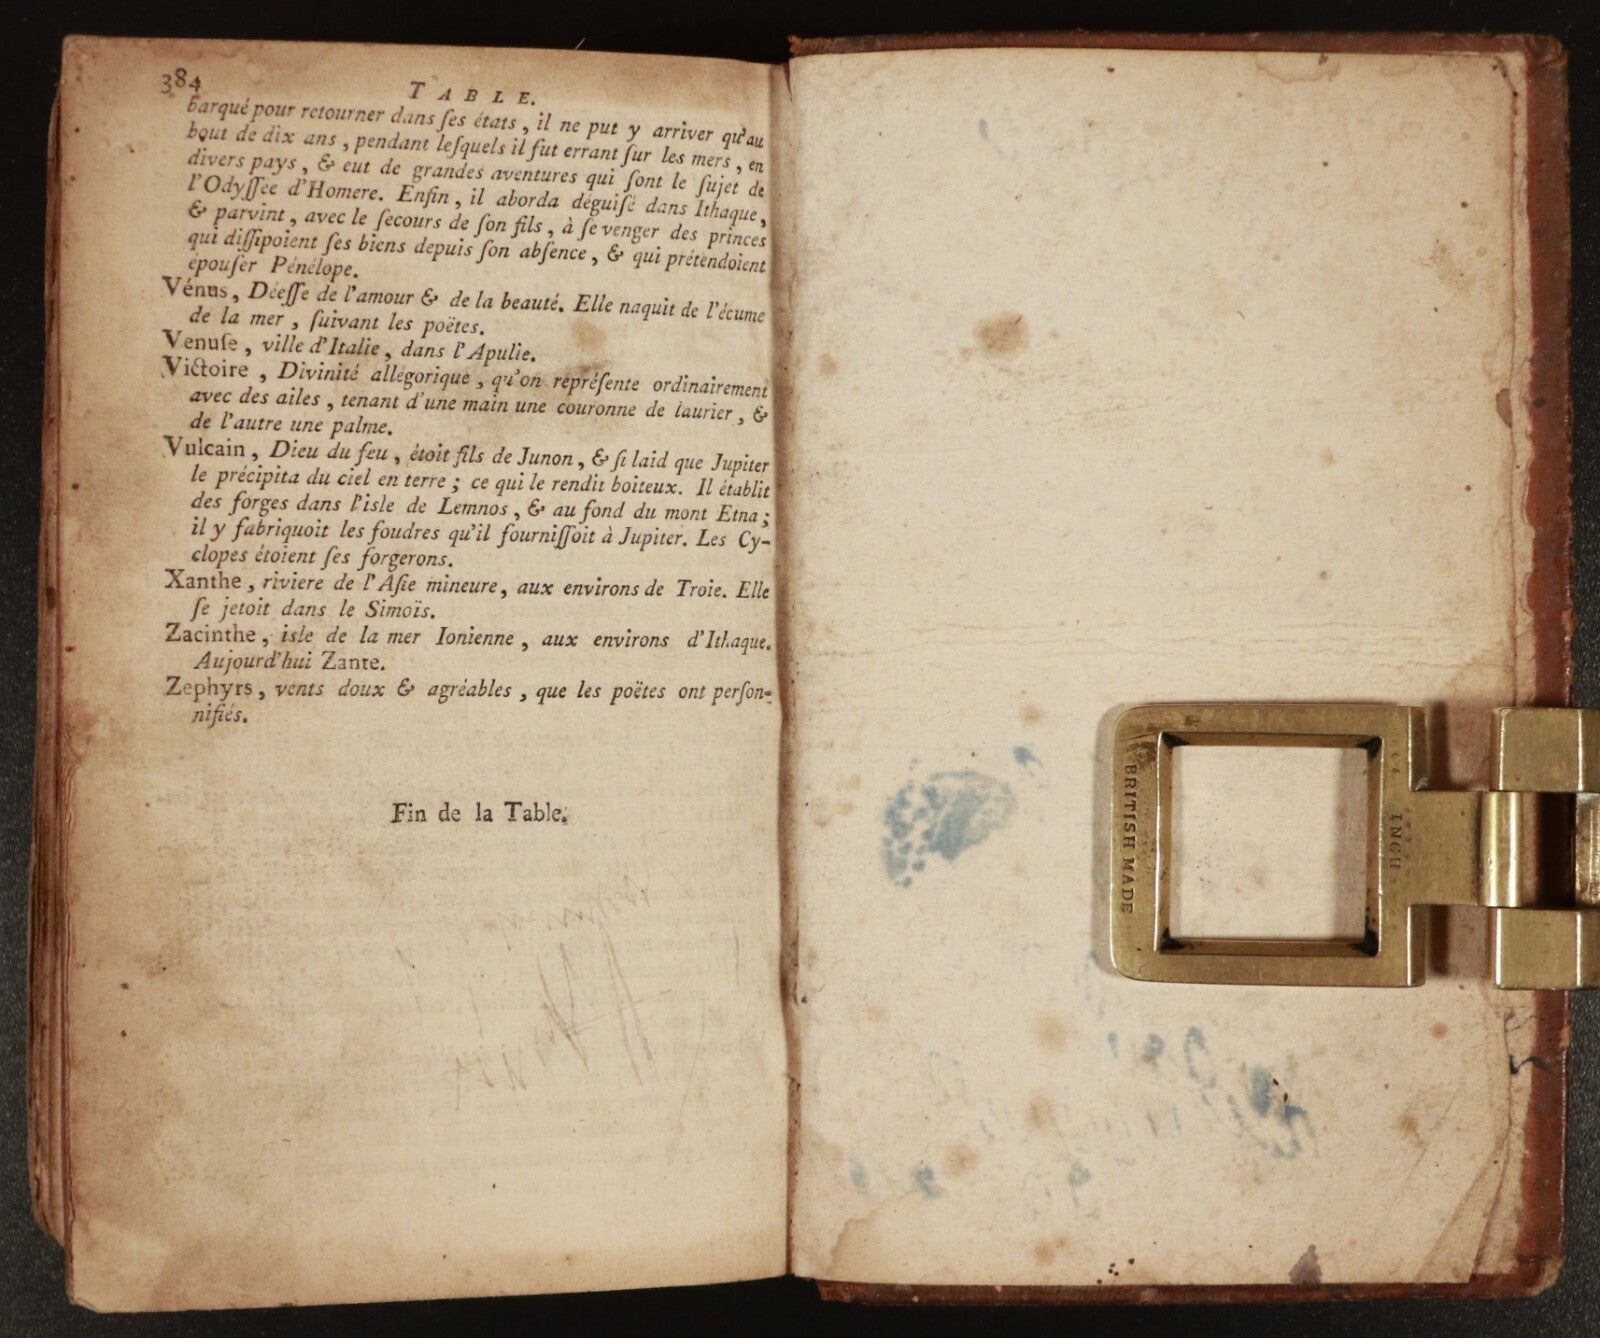 384
TABLE.
barqué pour retourner dans ſes états, il ne put y arriver qu'au
bout de dix ans, pendant leſquels il fut errant ſur les mers, en
divers pays, & eut de grandes aventures qui ſont le ſujet de
l'Odyſſée d'Homere. Enfin, il aborda déguiſé dans Ithaque,
& parvint, avec le ſecours de ſon fils, à ſe venger des princes
qui diſſipoient ſes biens depuis ſon abſence, & qui prétendoient
épouſer Pénélope.
Vénus, Déeſſe de l'amour & de la beauté. Elle naquit de l'écume
de la mer, ſuivant les poëtes.
Venuſe, ville d'Italie, dans l'Apulie.
Victoire, Divinité allégorique, qu'on repréſente ordinairement
avec des ailes, tenant d'une main une couronne de laurier, &
de l'autre une palme.
Vulcain, Dieu du feu, étoit fils de Junon, & ſi laid que Jupiter
le précipita du ciel en terre; ce qui le rendit boiteux. Il établit
des forges dans l'isle de Lemnos, & au fond du mont Etna;
il y fabriquoit les foudres qu'il fourniſſoit à Jupiter. Les Cy-
clopes étoient ſes forgerons.
Xanthe, riviere de l'Aſie mineure, aux environs de Troie. Elle
ſe jetoit dans le Simoïs.
Zacinthe, isle de la mer Ionienne, aux environs d'Ithaque.
Aujourd'hui Zante.
Zephyrs, vents doux & agréables, que les poëtes ont perſon-
nifiés.
Fin de la Table.
BRITISH MADE
INCH